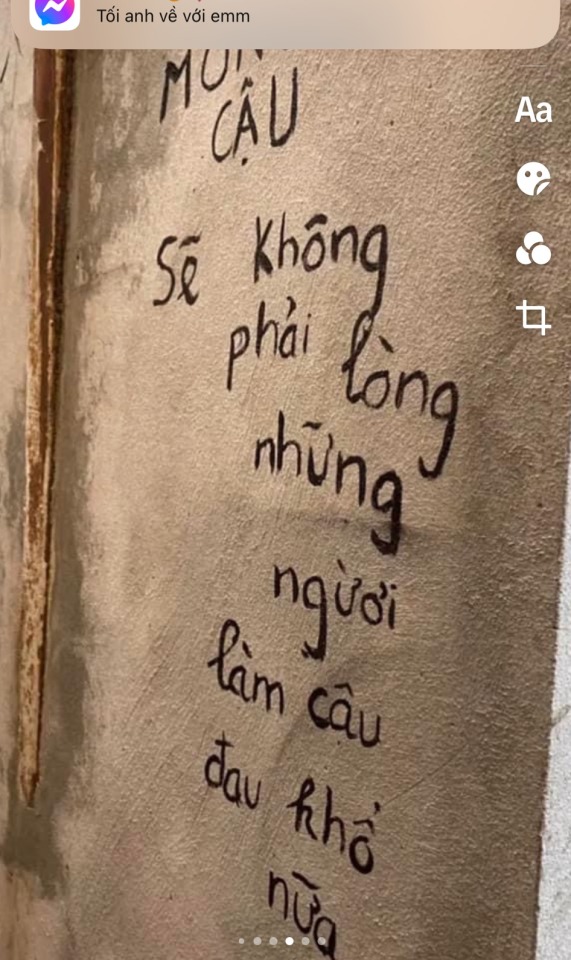 Tối anh về với emm
Aa
CẬU
Sẽ Không
phải lòng
những
người
làm cậu
đau khổ
nữa